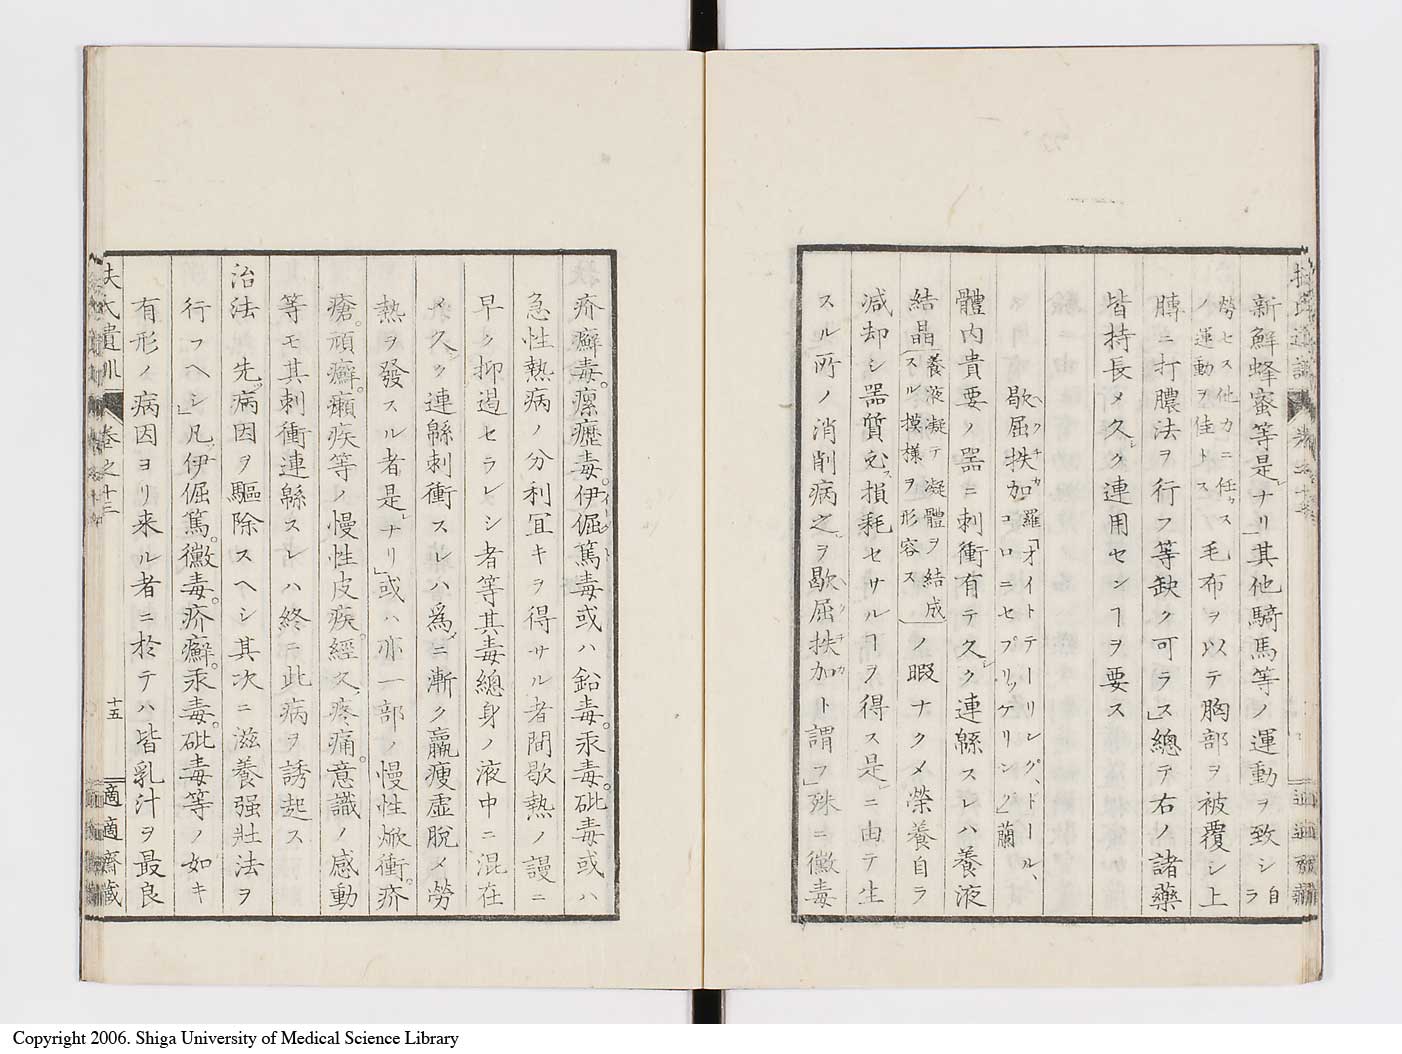 新鮮蜂蜜等是レナリ」其他騎馬等ノ運動ヲ致シ自ラ
勞セス他カニ任カス毛布ヲ以テ胸部ヲ被覆シ上
ノ運動ヲ佳トス
膊ニ打膿法ヲ行フ等缺ク可ラス」總テ右ノ諸藥
皆持長メ久シク連用センヿヲ要ス
歇屈扶加羅「オイトテーリレング、ドール、
ヘクチカ
コロニセプリッケリング」蘭
體内貴要ノ器ニ刺衝有テ久シク連緜スレハ養液
結晶養液凝テ凝體ヲ結成
スル摸樣ヲ形容ス
ノ暇ナクメ榮養自ラ
減却シ器質為ス損耗セサルヿヲ得ス是レニ由テ生
スル所ノ消削病之ヲ歇屈扶加ト謂フ」殊ニ黴毒
ヘクチカ
疥癬毒。瘰癧毒。伊倔篤毒或ハ鉛毒。汞毒。砒毒或ハ
イーグト
急性熱病ノ分利宜キヲ得サル者間歇熱ノ謾ニ
早ク抑遏セラレシ者等其毒總身ノ液中ニ混在
メ久シク連緜刺衝スレハ爲メニ漸ク羸瘦虛脫メ勞
熱ヲ發スル者是レナリ」或ハ亦一部ノ慢性焮衝。疥
瘡。頑癬。癩疾等ノ慢性皮疾。經久疼痛。意識ノ感動
等モ其刺衝連緜スレハ終ニ此病ヲ誘起ス
治法 先ツ病因ヲ驅除スヘシ其次ニ滋養强壯法ヲ
行フヘシ」凡ソ伊倔篤。黴毒。疥癬。汞毒。砒毒等ノ如キ
有形ノ病因ヨリ来ル者ニ於テハ皆乳汁ヲ最良
扶氏遺訓 卷之十三 十五 適適齋藏
Copyright 2006. Shiga University of Medical Science Library